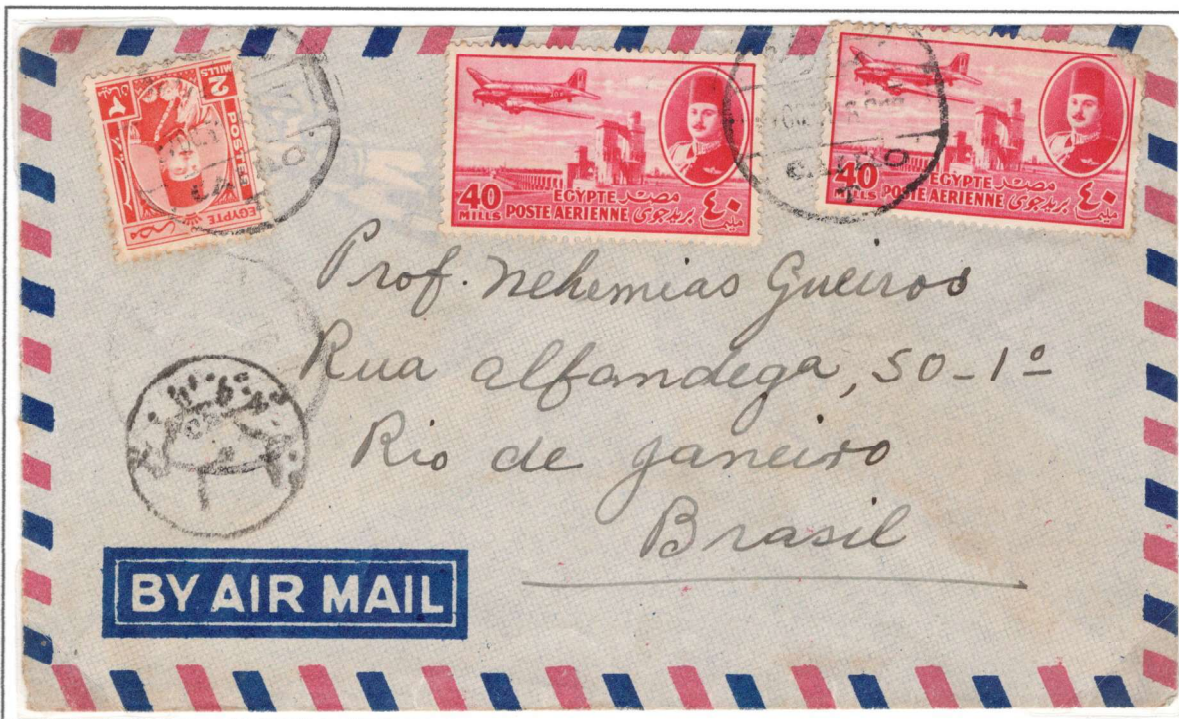 2
MILLS
٢
مليمان
POSTES
EGYPTE
مصر
CAIRO
40
MILLS
EGYPTE مصر
POSTE AERIENNE بريد جوى
٤٠
مليم
CAIRO
40
MILLS
EGYPTE مصر
POSTE AERIENNE بريد جوى
٤٠
مليم
Prof. Nehemias Gueiros
Rua Alfandega, 50-1º
Rio de Janeiro
Brasil
BY AIR MAIL